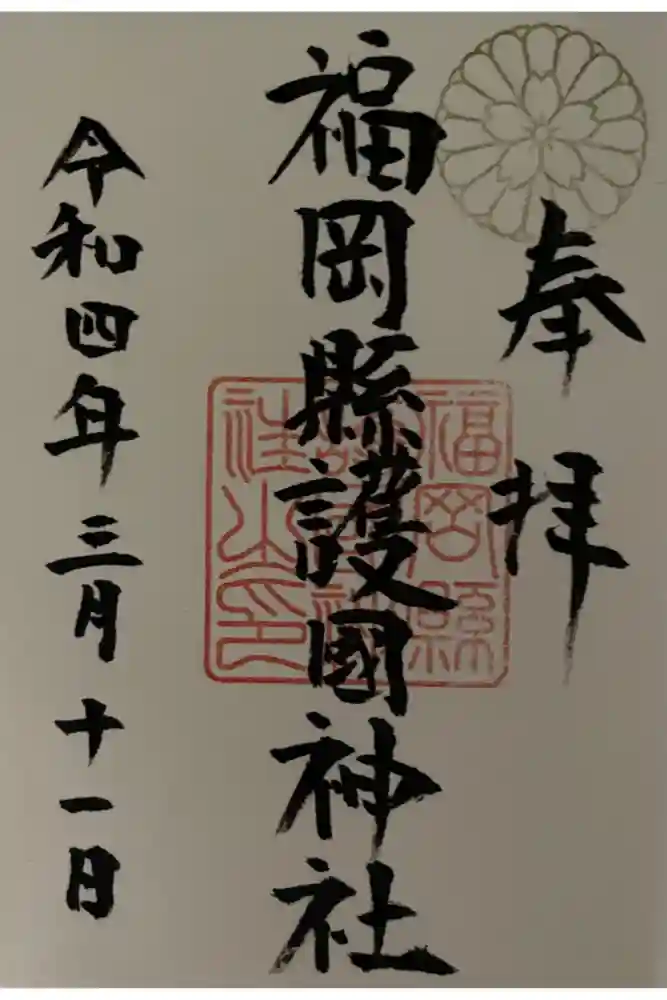 奉拝
福岡縣護國神社
福岡縣
社之印
令和四年三月十一日